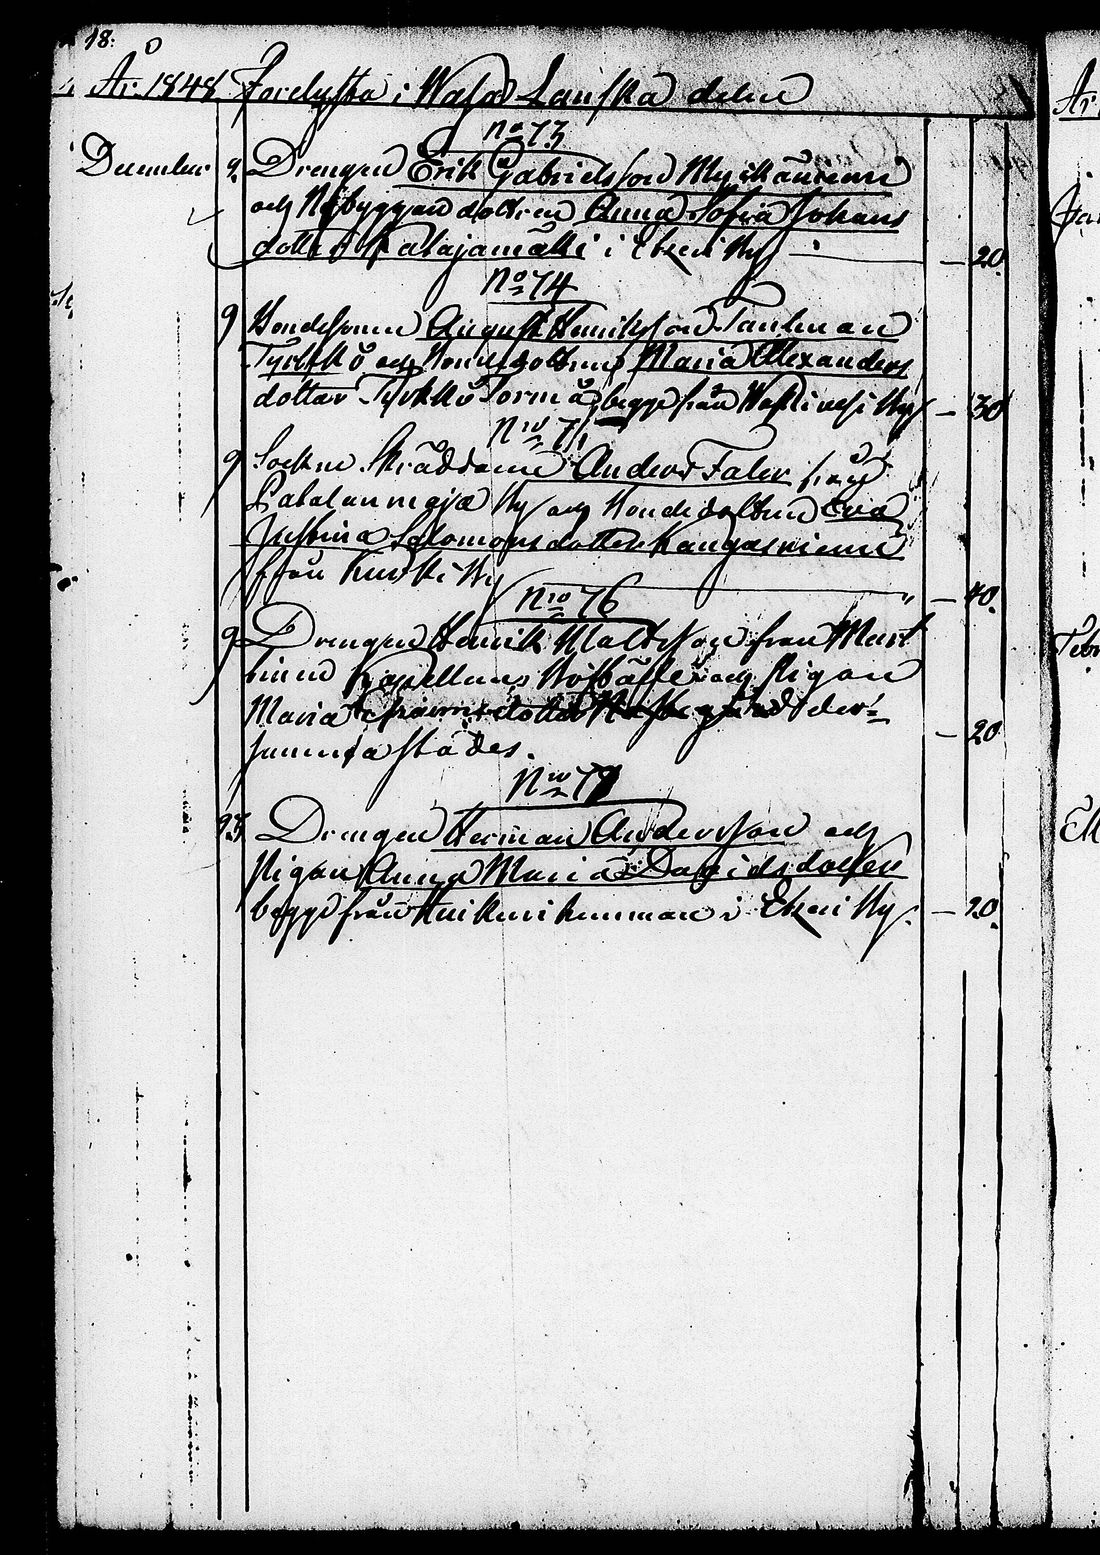 18:
År 1848 Förelysta i Wasa Länska delen
No 73
December 9. Drengen Erik Gabrielsson Myllkäinenn
och Nybyggaredottren Anna Sofia Johans
dotter Katajamäki i Etzeri By — 20.
No 74
9 Bondesonen August Henriksson Taulman
Tyrkkö och Bondedottren Maria Alexanders
dotter Tyrkkö Sormä, begge från Wehkivesi By — 30
Nro 75
9 Sockne Skräddaren Anders Faler från
By och Bondedottren Eva
Justina Salomonsdotter Kangasniemi
från Kurki By — 40.
Nro 76
9 Drengen Henrik Mattsson från Mart
tinen Kapellans Bohlställe och Pigan
Maria dotter der-
sammastädes. — 20
Nro 77
23. Drengen Herman Andersson och
Pigan Anna Maria Davidsdotter
begge från i Etzeri By. — 20.